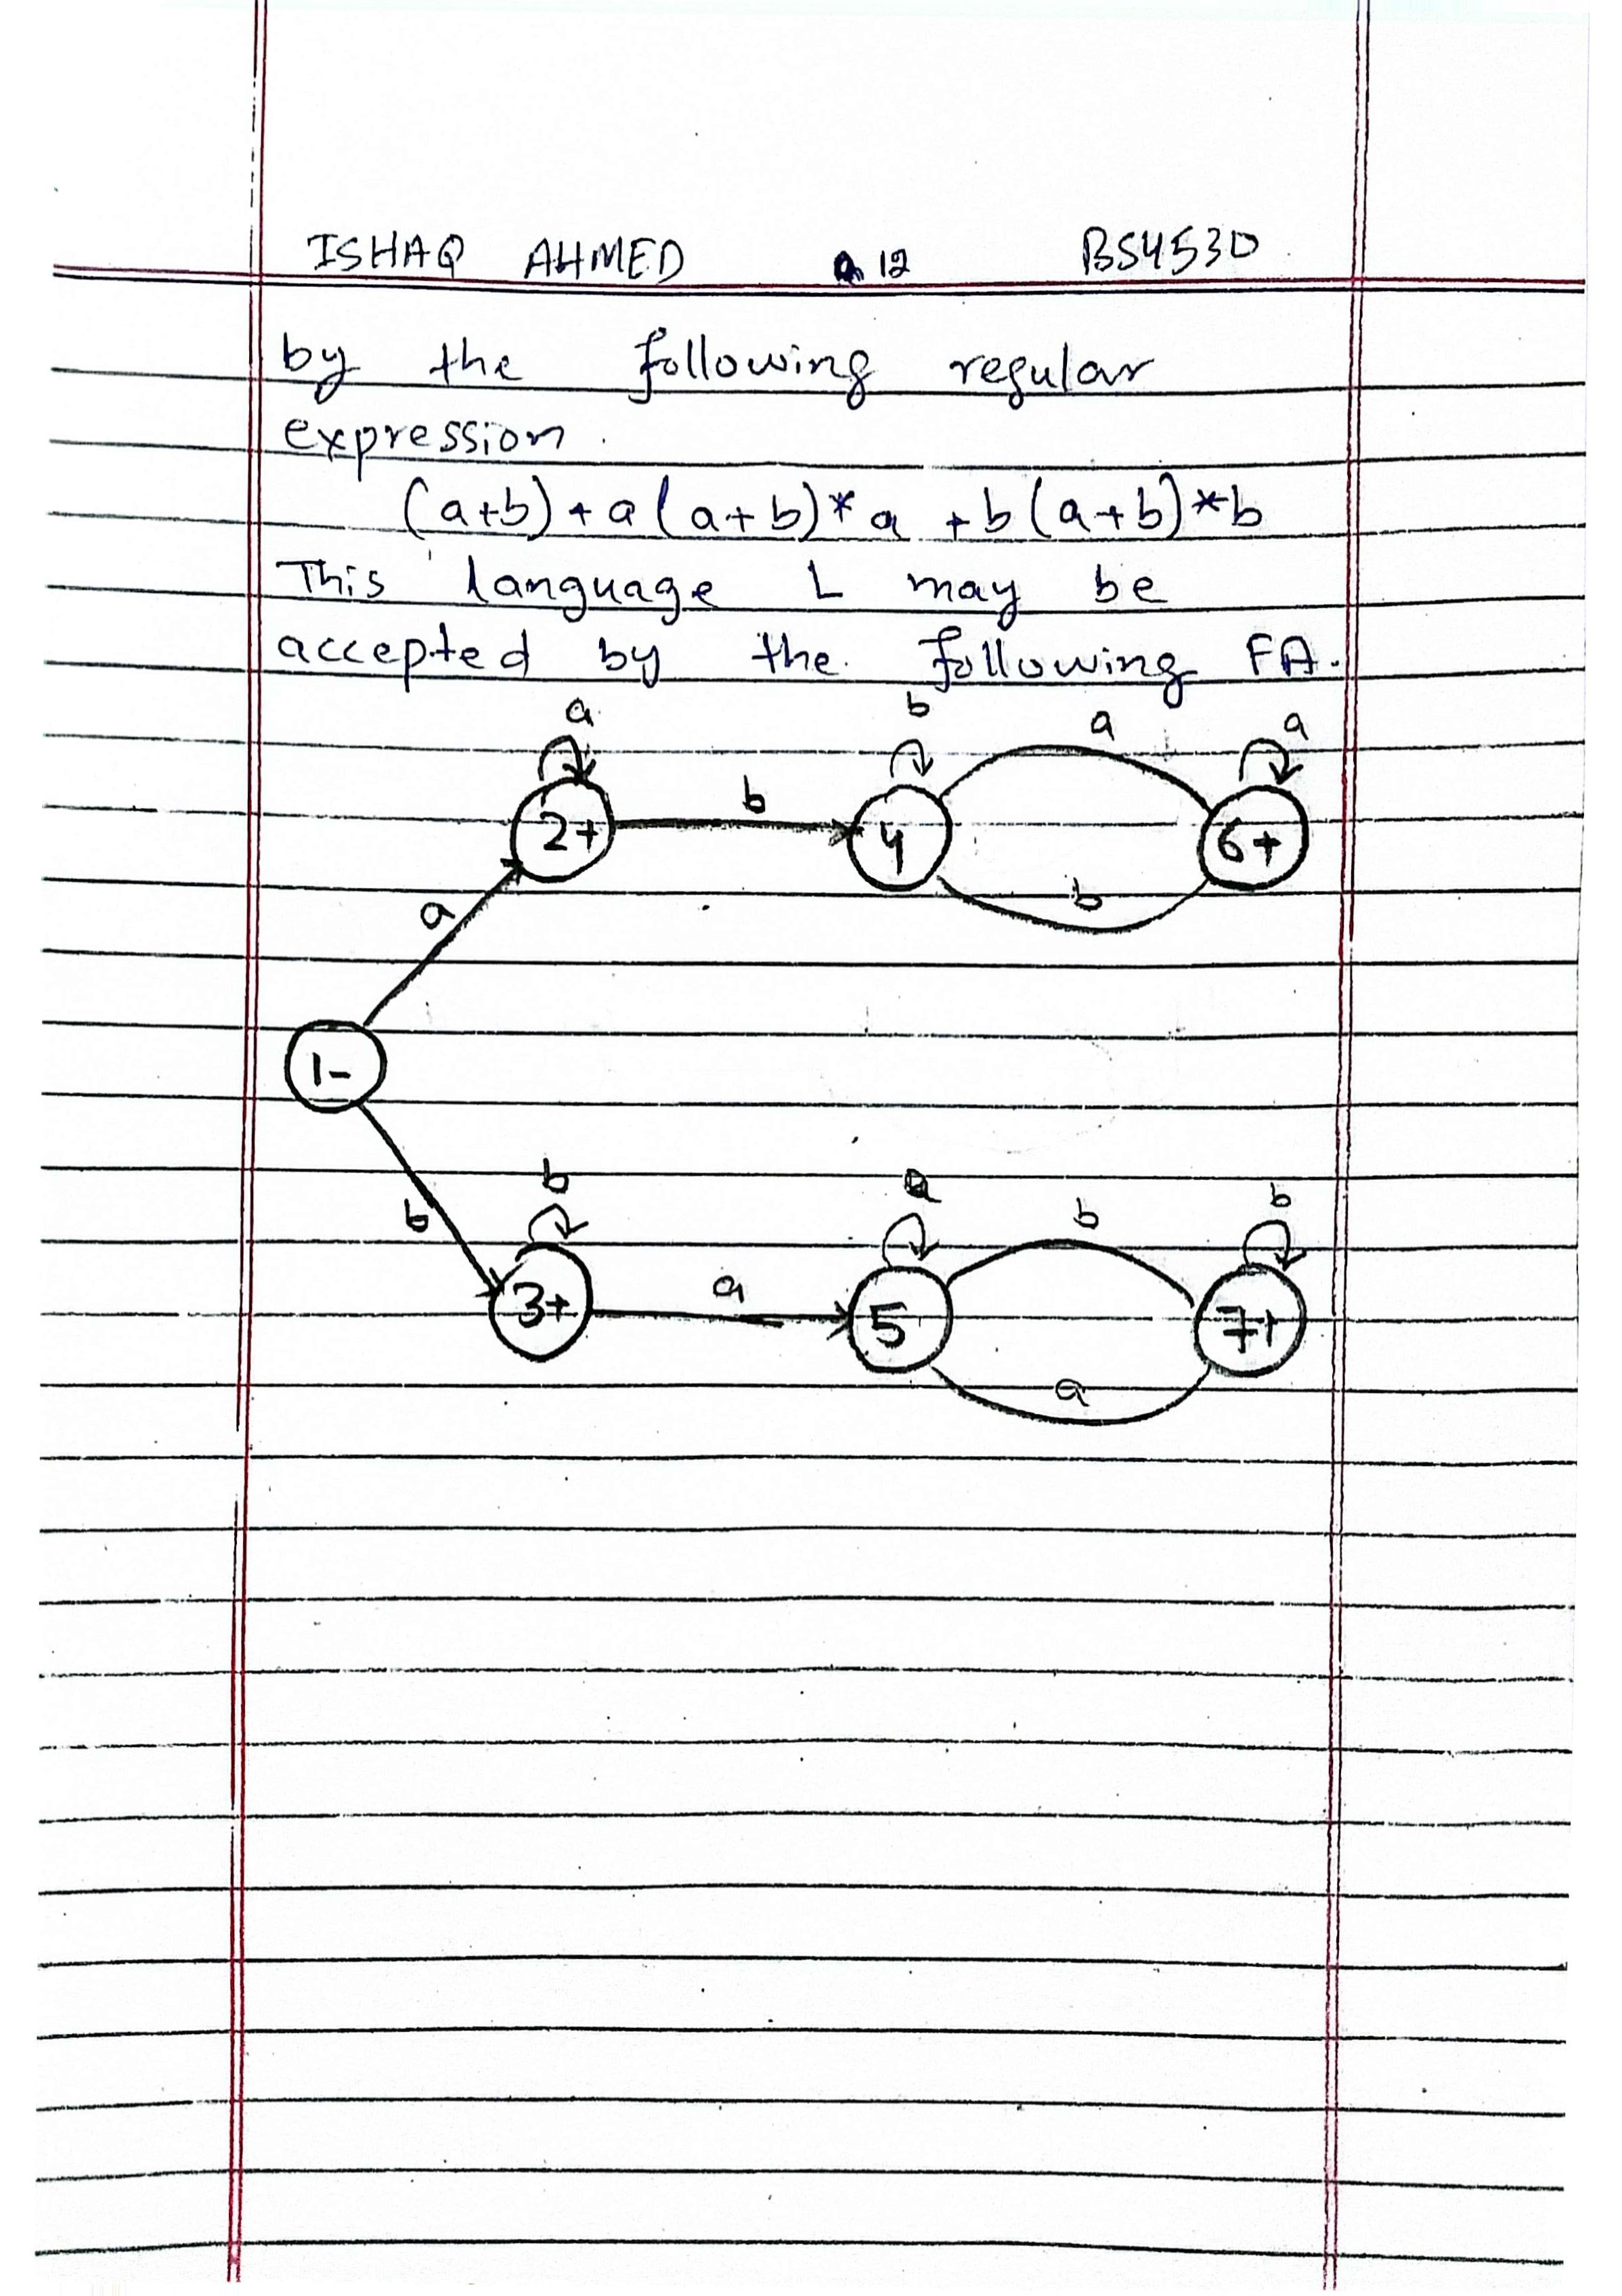 ISHAQ AHMED 12 BS4530
by the following regular
expression.
(a+b)+a(a+b)*a +b(a+b)*b
This language L may be
accepted by the following FA.
a b a a
2+ b 4 6+
a b
1-
b b a b b
3+ a 5 7+
a